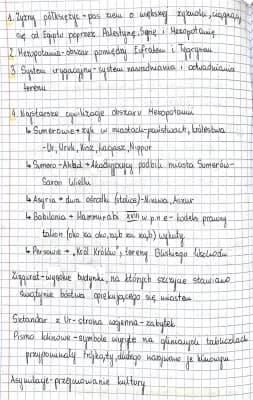 1. Żyzny półksiężyc - pas ziem o większej żyzności, ciągnący
się od Egiptu poprzez Palestynę, Syrię i Mezopotamię
2. Mezopotamia - obszar pomiędzy Eufratem i Tygrysem
3. System irygacyjny - system nawadniania i odwadniania
terenu
4. Najstarsze cywilizacje obszaru Mezopotamii
↳ Sumerowie → żyli w miastach-państwach, królestwa
- Ur, Uruk, Kisz, Lagasz, Nippur
↳ Sumero-Akkad → Akadyjczycy podbili miasta Sumerów-
Saron Wielki
↳ Asyria → dwa ośrodki (stolice) - Niniwa, Aszur
↳ Babilonia → Hammurabi XVIII w.p.n.e - kodeks prawny
talion (oko za oko, ząb za ząb) wykuty
↳ Persowie → "Król Królów", tereny Bliskiego Wschodu
Zigurat - wysokie budynki, na których szczycie stawiano
świątynie bóstwa opiekującego się miastem
Sztandar z Ur - strona wojenna - zabytek
Pismo klinowe - symbole wyryte na glinianych tabliczkach
przypominały trójkąty, dlatego nazywano je klinowym
Asymilacja - przejmowanie kultury